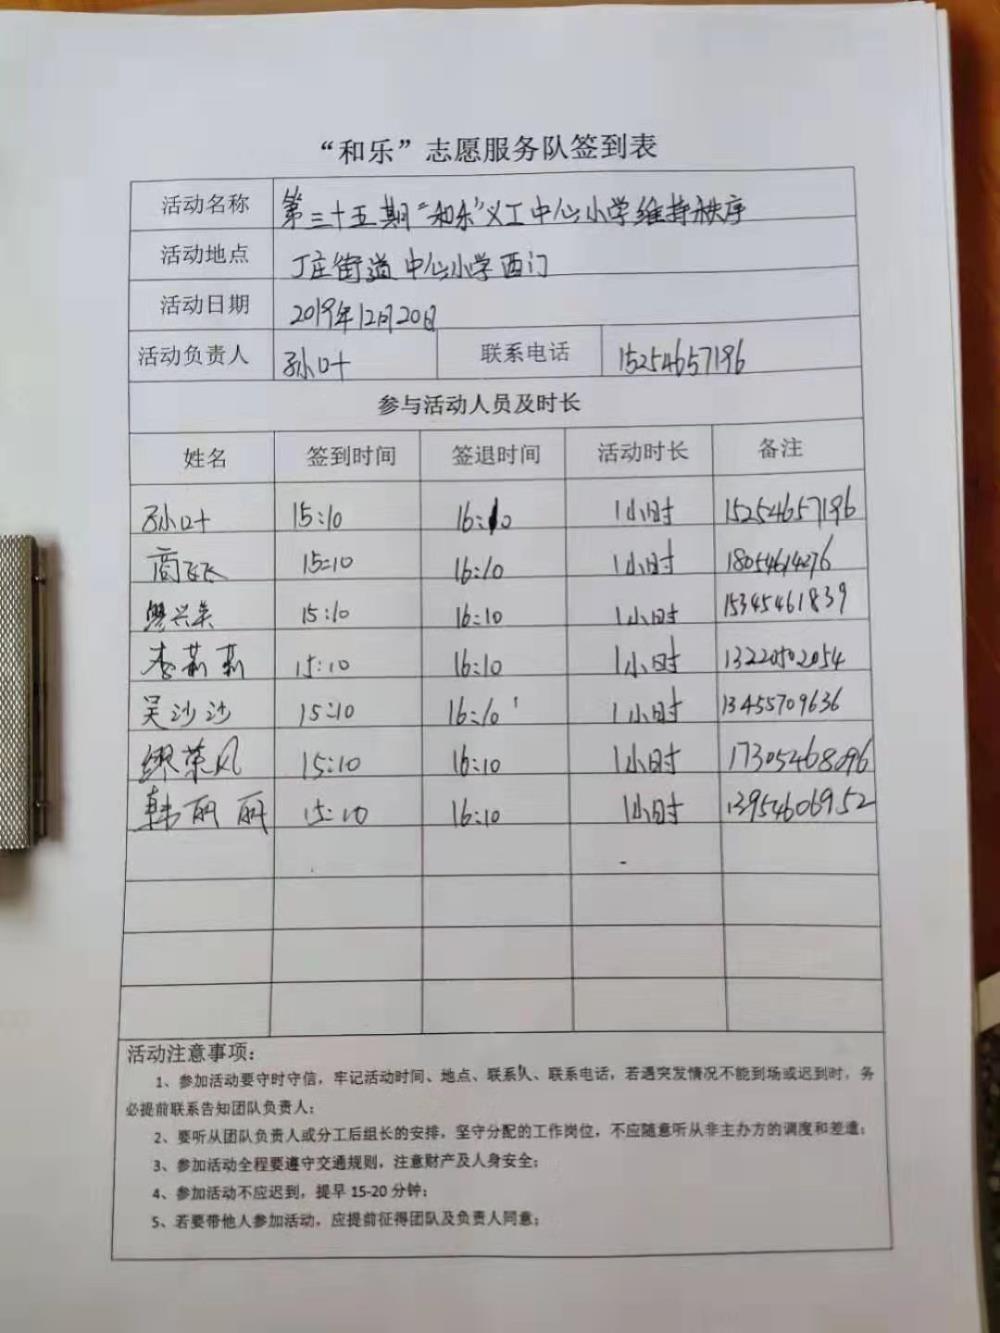 “和乐”志愿服务队签到表
活动名称 第三十五期“和乐”义工中心小学维持秩序
活动地点 丁庄街道中心小学西门
活动日期 2019年12月20日
活动负责人 孙叶 联系电话 15254657196
参与活动人员及时长
姓名 签到时间 签退时间 活动时长 备注
孙叶 15:10 16:10 1小时 15254657196
商飞飞 15:10 16:10 1小时 18054614276
兴荣 15:10 16:10 1小时 15345461839
李莉莉 15:10 16:10 1小时 13220502054
吴沙沙 15:10 16:10 1小时 13455709636
缪荣风 15:10 16:10 1小时 17305468096
韩丽丽 15:10 16:10 1小时 13954606952
活动注意事项:
1、参加活动要守时守信，牢记活动时间、地点、联系人、联系电话，若遇突发情况不能到场或迟到时，务
必提前联系告知团队负责人;
2、要听从团队负责人或分工后组长的安排，坚守分配的工作岗位，不应随意听从非主办方的调度和差遣;
3、参加活动全程要遵守交通规则，注意财产及人身安全;
4、参加活动不应迟到，提早 15-20 分钟;
5、若要带他人参加活动，应提前征得团队及负责人同意;